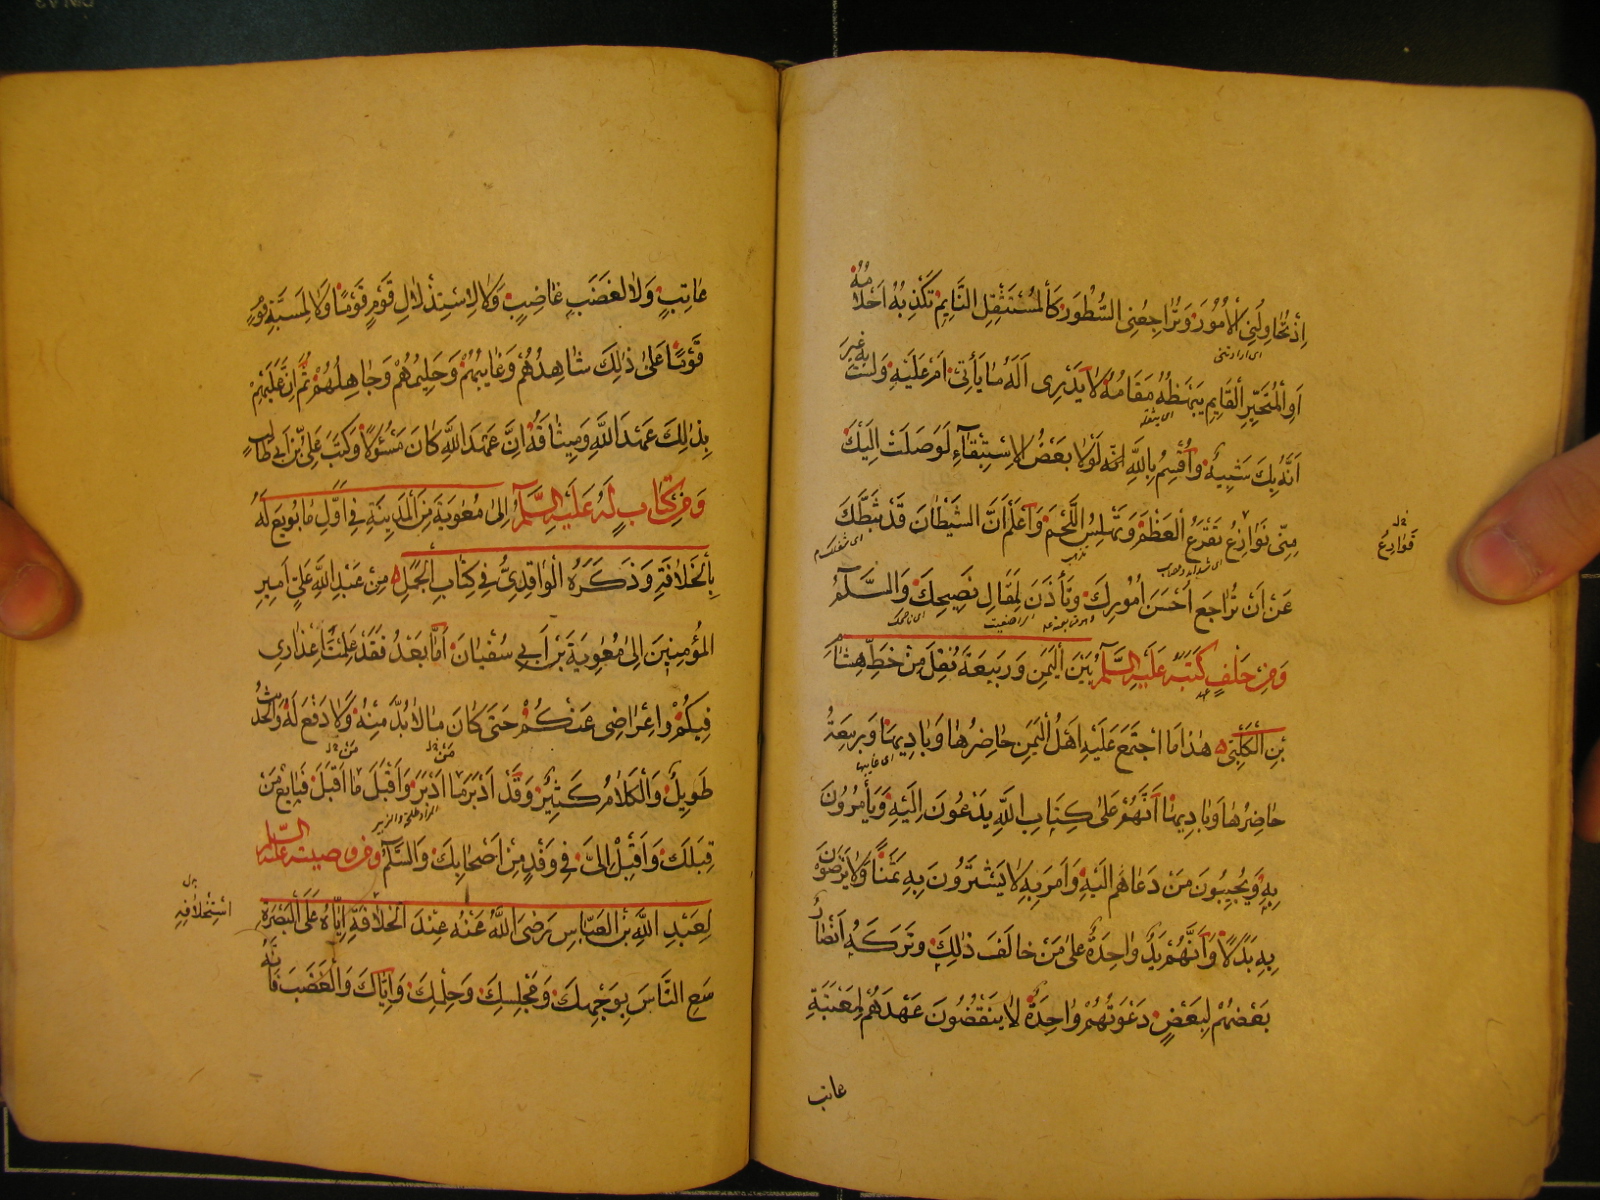 إِذْ تُحَاوِلُنِي الْأُمُورَ وَتُرَاجِعُنِي السُّطُورَ كَالْمُسْتَثْقِلِ النَّائِمِ تَكْذِبُهُ أَحْلَامُهُ
اي ارادتني
أَوِ الْمُتَحَيِّرِ الْقَائِمِ يَبْهَظُهُ مَقَامُهُ لَا يَدْرِى أَلَهُ مَا يَأْتِى أَمْ عَلَيْهِ وَلَسْتَ بِهِ غَيْرَ
اى يثقله
أَنَّهُ بِكَ شَبِيهٌ وَأُقْسِمُ بِاللَّهِ إِنَّهُ لَوْلَا بَعْضُ الْاِسْتِبْقَاءِ لَوَصَلَتْ إِلَيْكَ
مِنِّى نَوَازِعُ تَقْرَعُ الْعَظْمَ وَتَهْلِسُ اللَّحْمَ وَاعْلَمْ أَنَّ الشَّيْطَانَ قَدْ ثَبَّطَكَ
قَوَارِعُ
عَنْ أَنْ تُرَاجِعَ أَحْسَنَ أُمُورِكَ وَتَأْذَنَ لِمَقَالِ نَصِيحِكَ وَالسَّلَامُ
وَمِنْ حِلْفٍ كَتَبَهُ عَلَيْهِ السَّلَامُ بَيْنَ الْيَمَنِ وَرَبِيعَةَ نُقِلَ مِنْ خَطِّ هِشَامِ
بْنِ الْكَلْبِيِّ هٰذَا مَا اجْتَمَعَ عَلَيْهِ أَهْلُ الْيَمَنِ حَاضِرُهَا وَبَادِيهَا وَرَبِيعَةُ
حَاضِرُهَا وَبَادِيهَا أَنَّهُمْ عَلَى كِتَابِ اللَّهِ يَدْعُونَ إِلَيْهِ وَيَأْمُرُونَ
بِهِ وَيُجِيبُونَ مَنْ دَعَاهُمْ إِلَيْهِ وَأَمَرَ بِهِ لَا يَشْتَرُونَ بِهِ ثَمَنًا وَلَا يَرْضَوْنَ
بِهِ بَدَلًا وَأَنَّهُمْ يَدٌ وَاحِدَةٌ عَلَى مَنْ خَالَفَ ذٰلِكَ وَتَرَكَهُ أَنْصَارٌ
بَعْضُهُمْ لِبَعْضٍ دَعْوَتُهُمْ وَاحِدَةٌ لَا يَنْقُضُونَ عَهْدَهُمْ لِمَعْتَبَةِ
عاتب
عَاتِبٍ وَلَا لِغَضَبِ غَاضِبٍ وَلَا لِاسْتِذْلَالِ قَوْمٍ قَوْمًا وَلَا لِمَسَبَّةِ قَوْمٍ
قَوْمًا عَلَى ذٰلِكَ شَاهِدُهُمْ وَغَائِبُهُمْ وَحَلِيمُهُمْ وَجَاهِلُهُمْ ثُمَّ إِنَّ عَلَيْهِمْ
بِذٰلِكَ عَهْدَ اللَّهِ وَمِيثَاقَهُ إِنَّ عَهْدَ اللَّهِ كَانَ مَسْئُولًا وَكَتَبَ عَلِيُّ بْنُ أَبِي طَالِبٍ
وَمِنْ كِتَابٍ لَهُ عَلَيْهِ السَّلَامُ إِلَى مُعٰوِيَةَ مِنَ الْمَدِينَةِ فِى أَوَّلِ مَا بُويِعَ لَهُ
بِالْخَلَافَةِ وَذَكَرَهُ الْوَاقِدِىُّ فِى كِتَابِ الْجَمَلِ مِنْ عَبْدِ اللَّهِ عَلِيٍّ أَمِيرِ
الْمُؤْمِنِينَ إِلَى مُعٰوِيَةَ بْنِ أَبِي سُفْيَانَ أَمَّا بَعْدُ فَقَدْ عَلِمْتَ إِعْذَارِى
فِيكُمْ وَإِعْرَاضِى عَنْكُمْ حَتَّى كَانَ مَا لَا بُدَّ مِنْهُ وَلَا دَفْعَ لَهُ وَالْحَدِيثُ
طَوِيلٌ وَالْكَلَامُ كَثِيرٌ وَقَدْ أَدْبَرَ مَا أَدْبَرَ وَأَقْبَلَ مَا أَقْبَلَ فَبَايِعْ مَنْ
المراد طلحة والزبير
قِبَلَكَ وَأَقْبِلْ إِلَىَّ فِى وَفْدٍ مِنْ أَصْحَابِكَ وَالسَّلَامُ ومن وصيته عليه السلام
لِعَبْدِ اللَّهِ بْنِ الْعَبَّاسِ رَضِىَ اللَّهُ عَنْهُ عِنْدَ الْخَلَافَةِ إِيَّاهُ عَلَى الْبَصْرَةِ
اسْتِخْلَافِهِ
سَعِ النَّاسَ بِوَجْهِكَ وَمَجْلِسِكَ وَحِلْمِكَ وَإِيَّاكَ وَالْغَضَبَ فَإِنَّهُ